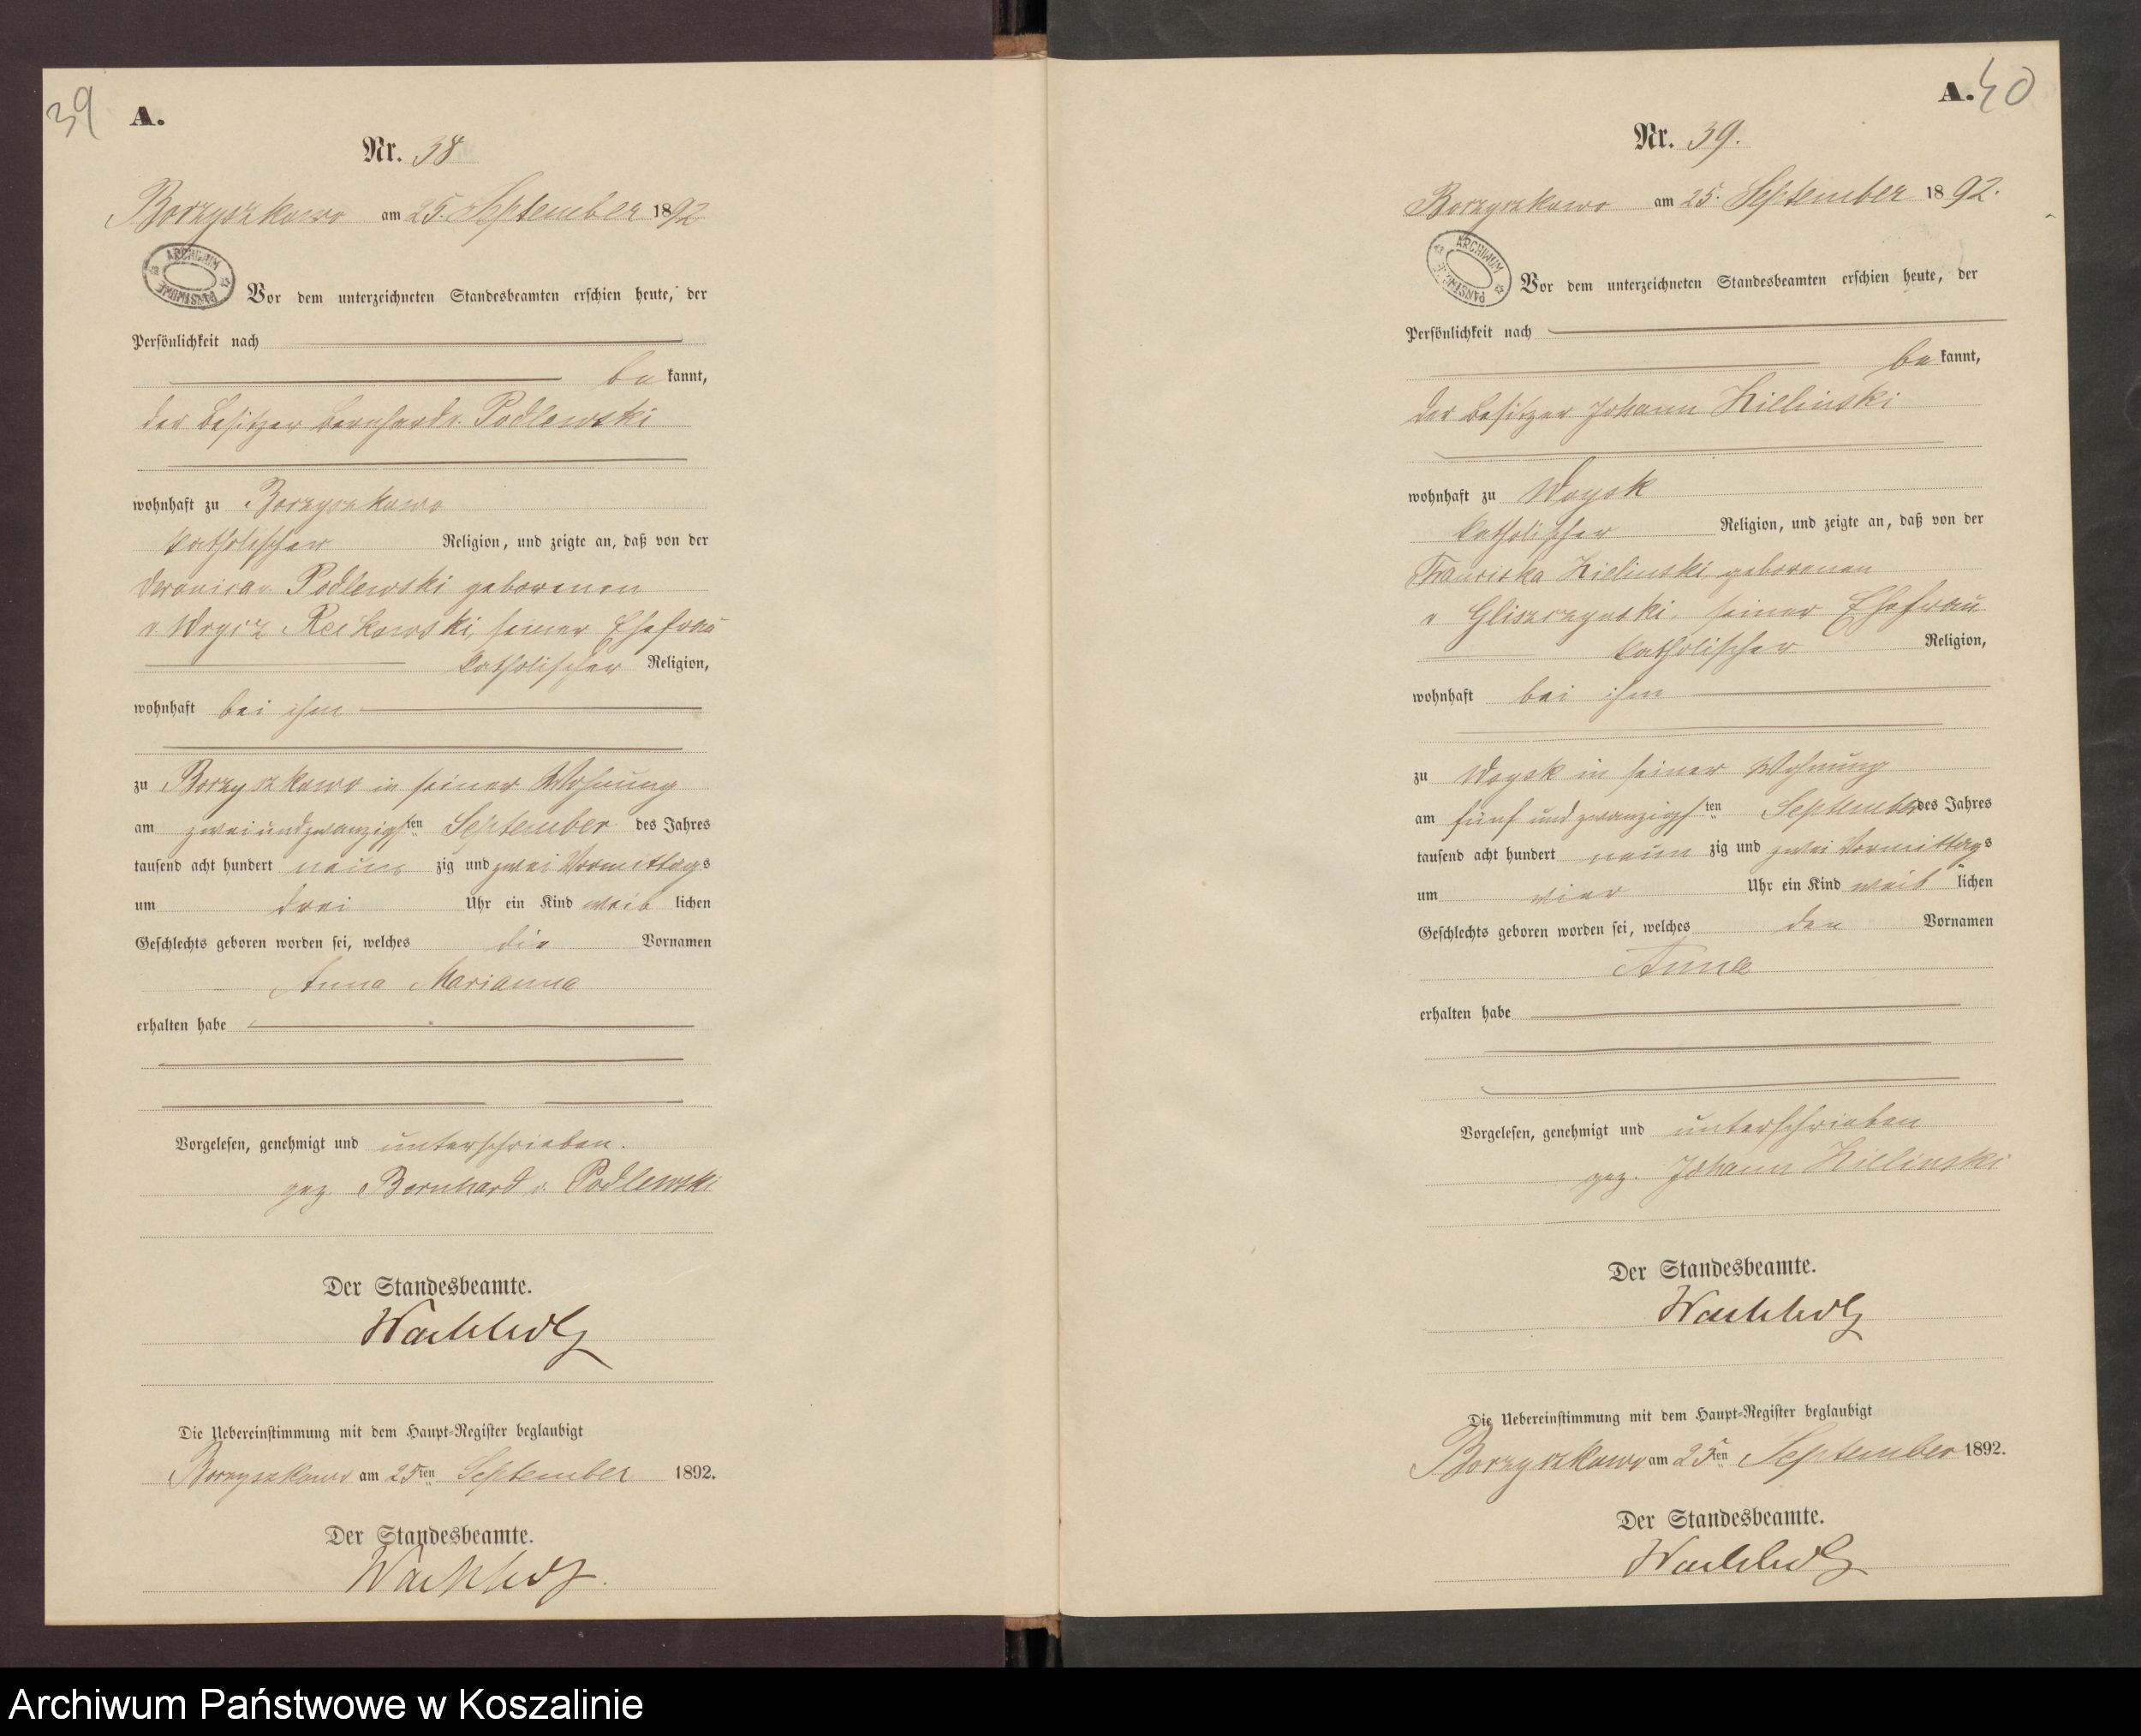 39
A.
Nr. 38
Borzyszkowo am 25. September 1892
ARCHIWUM PAŃSTWOWE
Vor dem unterzeichneten Standesbeamten erschien heute, der
Persönlichkeit nach
bekannt,
der Besitzer Bernhard v. Podlewski
wohnhaft zu Borzyszkowo
katholischer Religion, und zeigte an, daß von der
Veronica v. Podlewski geborenen
v. Wrycz Reckowski, seiner Ehefrau
katholischer Religion,
wohnhaft bei ihm
zu Borzyszkowo in seiner Wohnung
am zweiundzwanzigsten September des Jahres
tausend acht hundert neun zig und zwei Vormittags
um drei Uhr ein Kind weib lichen
Geschlechts geboren worden sei, welches die Vornamen
Anna Marianna
erhalten habe
Vorgelesen, genehmigt und unterschrieben.
gez. Bernhard v. Podlewski
Der Standesbeamte.
Wachholz
Die Uebereinstimmung mit dem Haupt-Register beglaubigt
Borzyszkowo am 25ten September 1892.
Der Standesbeamte.
Wachholz.
A. 40
Nr. 39.
Borzyszkowo am 25. September 1892.
ARCHIWUM PAŃSTWOWE
Vor dem unterzeichneten Standesbeamten erschien heute, der
Persönlichkeit nach
bekannt,
der Besitzer Johann Kielinski
wohnhaft zu Woysk
katholischer Religion, und zeigte an, daß von der
Franciska Kielinski geborenen
v Gliszczynski, seiner Ehefrau
katholischer Religion,
wohnhaft bei ihm
zu Woysk in seiner Wohnung
am fünf und zwanzigsten September des Jahres
tausend acht hundert neun zig und zwei Vormittags
um vier Uhr ein Kind weib lichen
Geschlechts geboren worden sei, welches den Vornamen
Anna
erhalten habe
Vorgelesen, genehmigt und unterschrieben
gez. Johann Kielinski
Der Standesbeamte.
Wachholz
Die Uebereinstimmung mit dem Haupt-Register beglaubigt
Borzyszkowo am 25ten September 1892.
Der Standesbeamte.
Wachholz
Archiwum Państwowe w Koszalinie